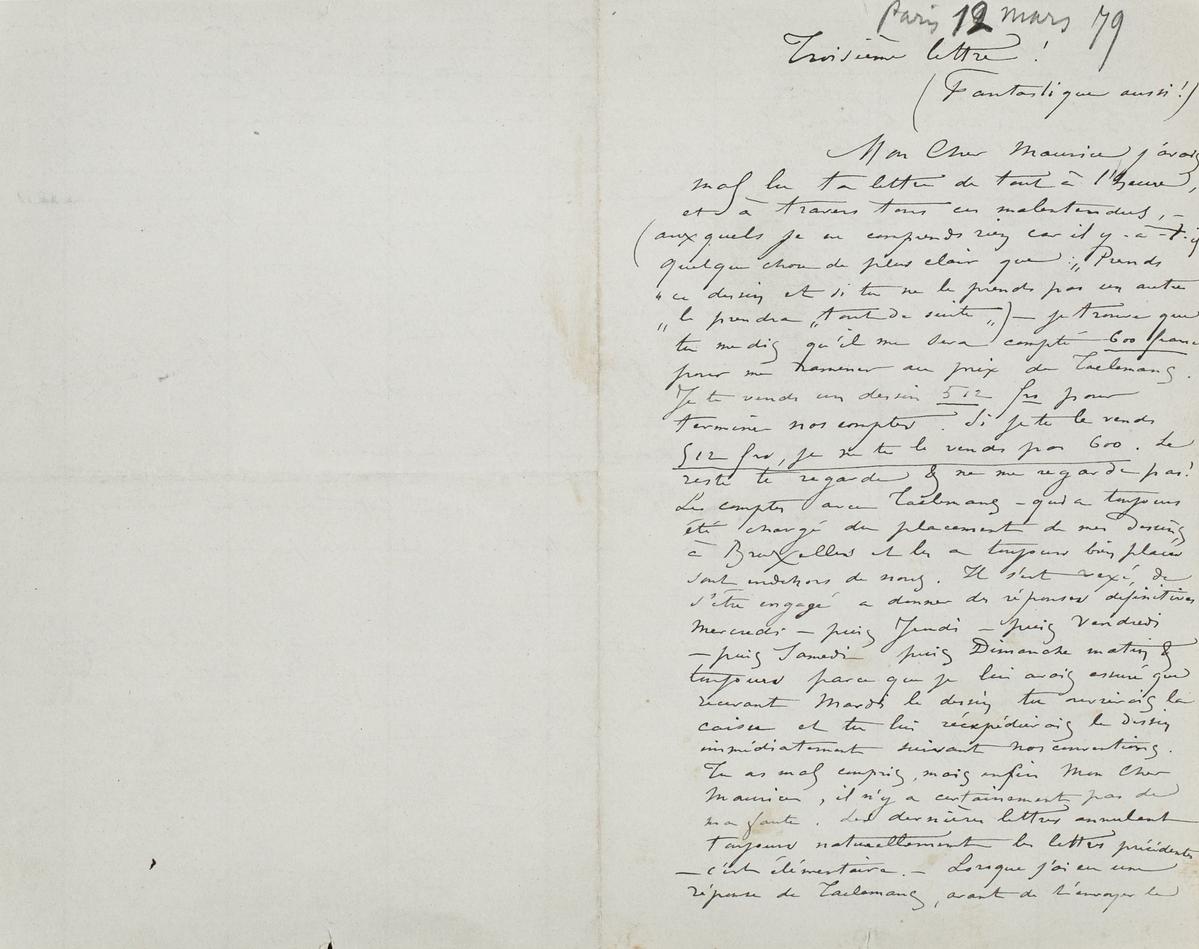 Paris 12 mars 79
Troisième lettre !
(Fantastique aussi !)
Mon Cher Maurice j'avais
mal lu ta lettre de tout à l'heure,
et à travers tous ces malentendus, –
(auxquels je ne comprends rien car il y-a-t-il
quelque chose de plus clair que : „Prends
„ce dessin et si tu ne le prends pas un autre
„le prendra „tout de suite„) – je trouve que
tu me dis qu'il me sera compté 600 francs
pour me ramener au prix de Taelemans.
Je te vends un dessin 512 frs pour
terminer nos comptes. Si je te le vends
512 frs, je ne te le vends pas 600. Le
reste te regarde & ne me regarde pas !
Les comptes avec Taelemans – qui a toujours
été chargé du placement de mes dessins
à Bruxelles et les a toujours bien placés
sont endehors de nous. Il s'est vexé de
s'être engagé a donner des réponses définitives
mercredi – puis Jeudi – puis Vendredi
– puis Samedi puis Dimanche matin &
toujours parce que je lui avais assuré que
recevant Mardi le dessin tu ouvrirais la
caisse et tu lui réexpédierais le dessin
immédiatement suivant nos conventions.
Tu as mal compris, mais enfin Mon Cher
Maurice, il n'y a certainement pas de
ma faute. Les dernières lettres annulent
toujours naturellement les lettres précédentes
– c'est élémentaire. – Lorsque j'ai eu une
réponse de Taelemans, avant de t'envoyer le